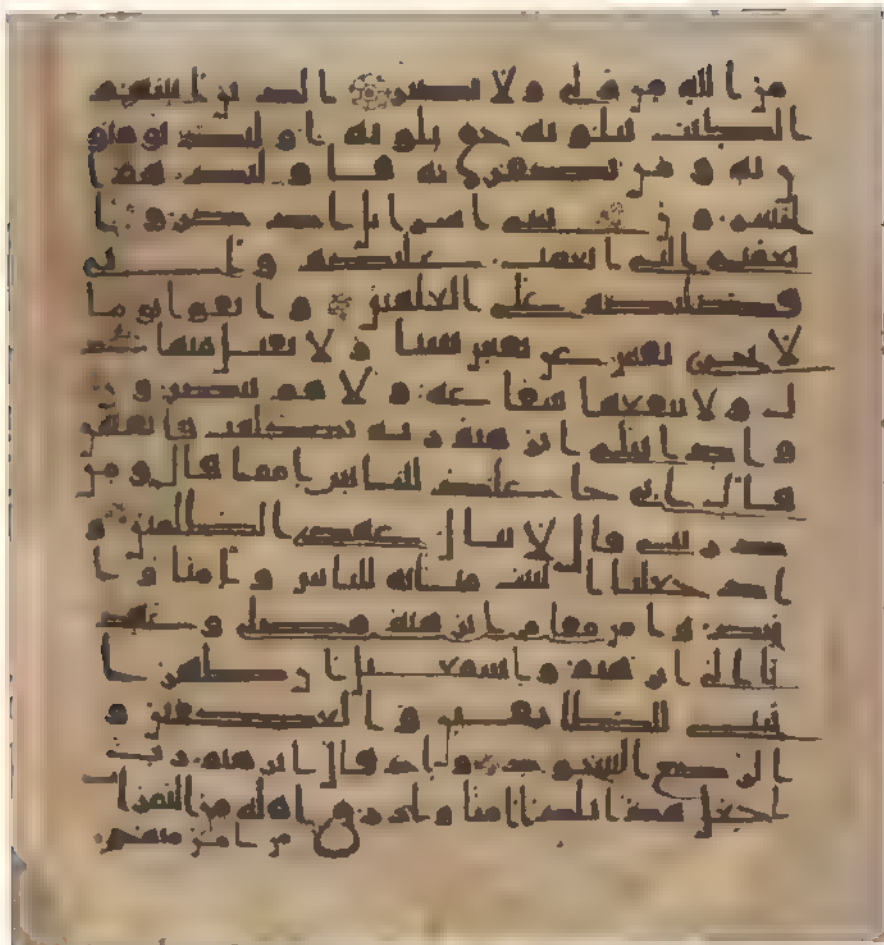 من الله من ولي ولا نصير الذين اتينهم
الكتب يتلونه حق تلوته اوليك يومنو
ن به ومن يكفر به فاوليك هم ا
لخسرون يبني اسرايل اذكروا
نعمتي التي انعمت عليكم واني
فضلتكم على العلمين واتقوا يوما
لا تجزي نفس عن نفس شيا ولا يقبل منها عد
ل ولا تنفعها شفاعة ولا هم ينصرون
واذ ابتلى ابرهيم ربه بكلمت فاتمهن
قال اني جاعلك للناس اماما قال ومن
ذريتي قال لا ينال عهدي الظلمين و
اذ جعلنا البيت مثابة للناس وامنا وا
تخذوا من مقام ابرهيم مصلى وعهد
نا الى ابرهيم واسمعيل ان طهرا
بيتي للطايفين والعكفين و
الركع السجود واذ قال ابرهيم رب
اجعل هذا بلدا امنا وارزق اهله من الثمرت
من امن منهم